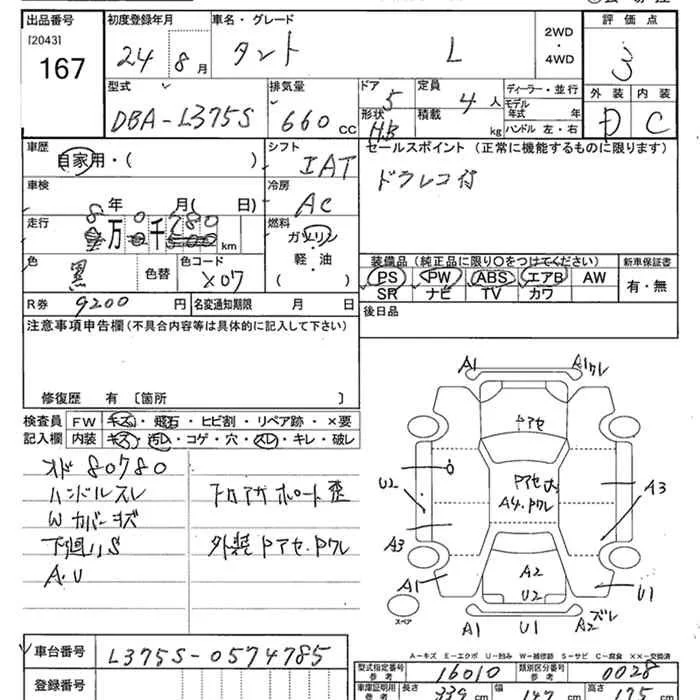 出品番号 初度登録年月 車名・グレード 2WD・4WD 評価点
[2043]
167 24年8月 タント L 3
型式 排気量 ドア 定員 ディーラー・並行 外装 内装
DBA-L375S 660cc 5 4人 モデル年式 年 D C
形状 積載 ハンドル 左・右
H.B kg
車歴 シフト セールスポイント (正常に機能するものに限ります)
自家用・( ) IAT ドラレコ付
車検 冷房
8年 月( 日) AC
走行 燃料
8万0千780km ガソリン
軽・油
( )
色 色替 色コード 装備品(純正品に限り○をつけてください) 新車保証書
黒 X07 PS PW ABS エアB AW 有・無
SR ナビ TV カワ
R券 9200円 名変通知期限 月 日 後日品
注意事項申告欄(不具合内容等は具体的に記入して下さい)
修復歴 有 〔箇所 〕
検査員記入欄 FW キズ・飛石・ヒビ割・リペア跡・×要
内装 キズ・汚レ・コゲ・穴・スレ・キレ・破レ
オド 80780
ハンドルスレ
W カバーキズ 外装 Pアセ・Pワレ
下廻りS
A・U
A1 A1 ワレ
Pアセ
U2 A4・Pワレ A3
A3
A1 A2 U1
U2
スペア A1 U1 A2 ズレ
A-キズ E-エクボ U-凹み W-補修跡 S-サビ C-腐食 XX-交換済
車台番号 L375S-0574785 型式指定番号 参考 16010 類別区分番号 参考 0028
登録番号 車庫証明用 参考 長さ 339cm 幅 147cm 高さ 175cm